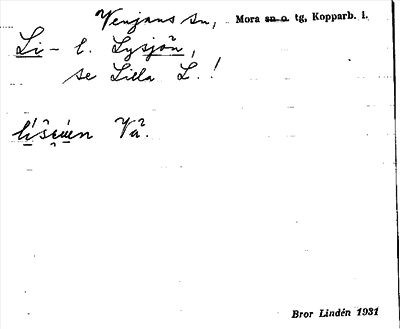 Venjans sn, Mora sn o. tg, Kopparb. l.
Li- l. Lysjön,
se Lilla L.!
Vå.
Bror Lindén 1931